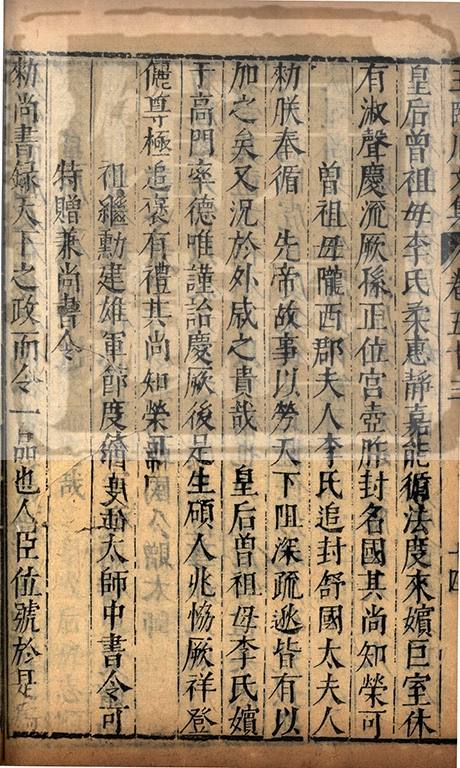 王臨川文集 卷五十三 十四
皇后曾祖母李氏柔惠靜嘉能循法度來嬪巨室休
有淑聲慶流厥孫正位宮壼胙封名國其尚知榮可
曾祖母隴西郡夫人李氏追封舒國太夫人
勑朕奉循 先帝故事以勞天下阻深疏逖皆有以
加之矣又況於外戚之貴哉 皇后曾祖母李氏嬪
于高門率德唯謹詒慶厥後是生碩人兆恊厥祥登
儷尊極追褒有禮其尚知榮
祖繼勳建雄軍節度 太師中書令可
特贈兼尚書令
勑尚書錄天下之政而令一品也人臣位號於是